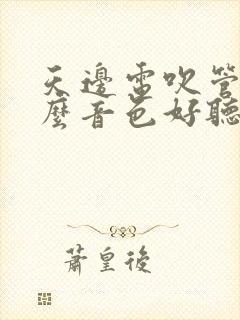 天邊雷吹管
麼音色好聽
蕭皇後